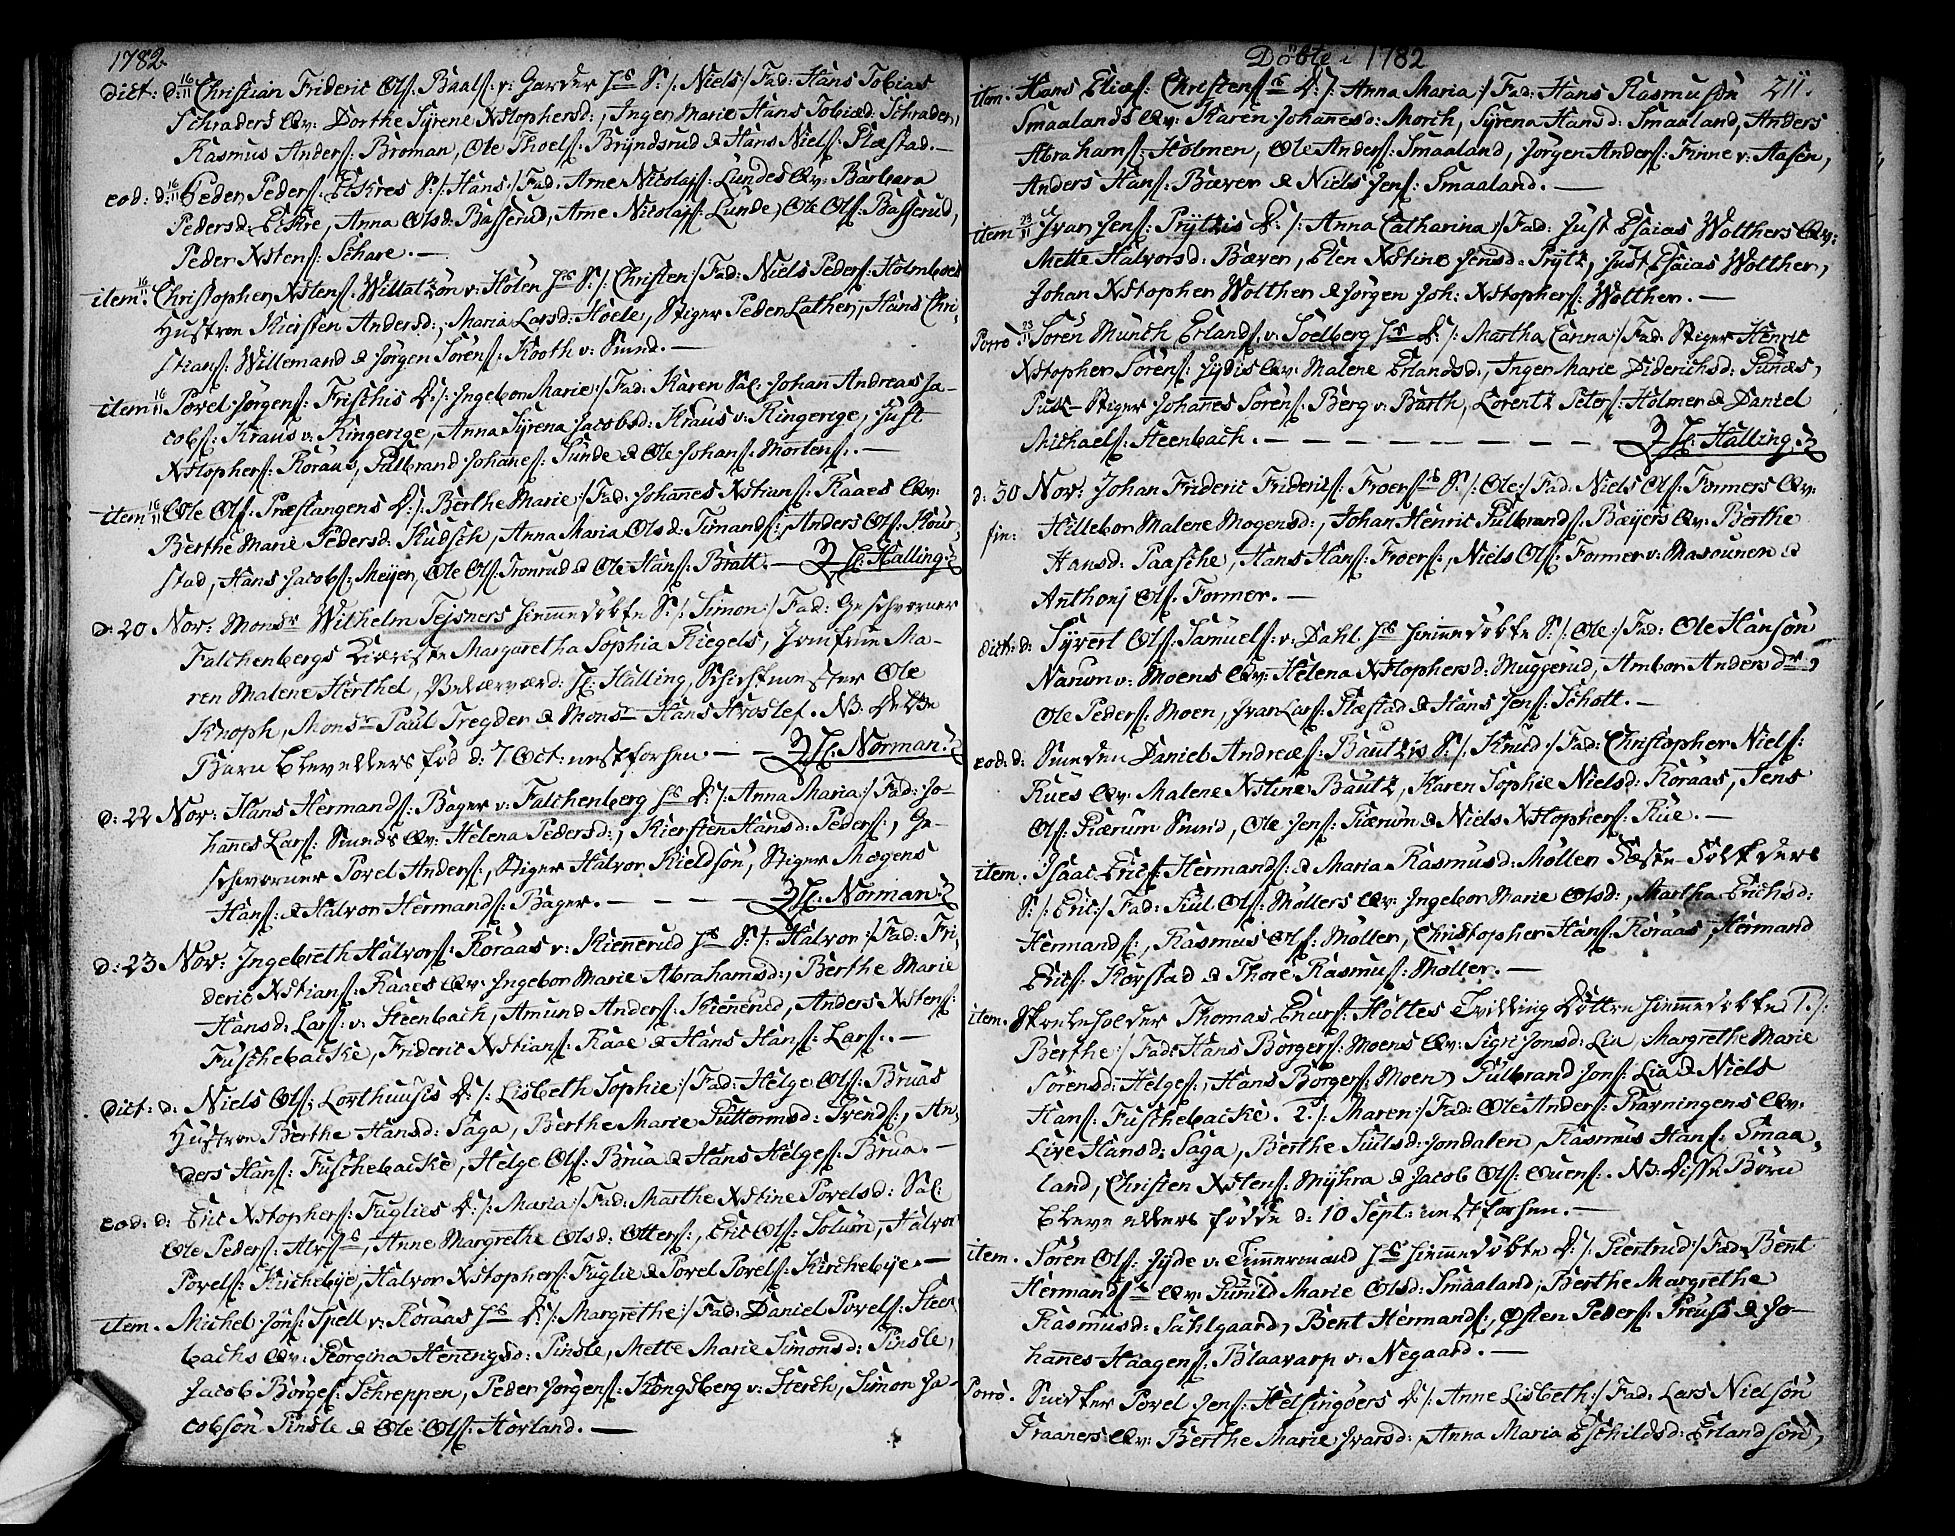 1782.
dict: d: 16/11 Christian Frideric Ols: Baals: v: Garder Js S:/: Niels:/ Fad: Hans Tobias
Schraders Qv: Dorthe Syrene Xstophersd:, Inger Marie Hans Tobiæd: Schrader,
Rasmus Anders: Broman, Ole Thoels: Bryndsrud & Hans Niels: Plæstad. —
eod: d: 16/11 Peder Peders: Eskres S:/: Hans:/ Fad: Arne Nicolajs: Lundes Qv: Barbara
Pedersd: Eskre, Anna Olsd: Basserud, Arne Nicolajs: Lunde, Ole Ols: Basserud,
Peder Xstens: Schare. —
item: 16/11 Christopher Xstens: Willatzon v: Holen Js S:/: Christen:/ Fad: Niels Peders: Holmboes
Hustroe Kiersten Andersd:, Maria Larsd: Hoele, Stiger Peder Lather, Hans Chri-
stians: Willemand & Jörgen Sörens: Kooth v: Smed. —
item 16/11 Povel Jörgens: Frischis D:/: Ingebor Marie:/ Fad: Karen Sal: Johan Andreas Ja-
cobs: Kraus v: Ringerige, Anna Syrena Jacobsd: Kraus v: Ringerige, Just
Xstophers: Roraas, Gulbrand Johanes: Sunde & Ole Johans: Mortens:. —
item 16/11 Ole Ols: Præstangens D:/: Berthe Marie:/ Fad: Johannes Xstians: Raaes Qv:
Berthe Marie Pedersd: Kudsch, Anna Maria Olsd: Timands:, Anders Ols: Kour-
stad, Hans Jacobs: Meyer, Ole Ols: Tronrud & Ole Hans: Bratt. — Hr: Halling.
d: 20 Nov: Monsr Wilhelm Tejsners hiemmedöbte S:/: Simon:/ Fad: Geschworner
Falchenbergs Kiæreste Margaretha Sophia Riegels, Jomfrue Ma-
ren Malene Herthel, Velærværd: Hr: Halling, Schichtmester Ole
Knoph, Monsr Paul Tregder & Monsr Hans Hvoslef. NB: Dette
Barn blev ellers föd d: 7 Oct: nestforhen. — Hr: Norman.
d: 22 Nov: Hans Hermands: Bager v: Falchenberg Js D:/: Anna Maria:/ Fad: Jo-
hanes Lars: Smeds Qv: Helena Pedersd:, Kiersten Hansd: Peders:, Ge-
schworner Povel Anders:, Stiger Halvor Kieldson, Stiger Mogens
Hans: & Halvor Hermands: Bager. — — — — Hr: Norman
d: 23 Nov: Ingebreth Halvors: Roraas v: Kiennerud Js S:/: Halvor:/ Fad: Fri-
deric Xstians: Raaes Qv: Ingebor Marie Abrahamsd:, Berthe Marie
Hansd: Lars: v: Steenbach, Amund Anders: Kienerud, Anders Xstens:
Fuschebacke, Frideric Xstians: Raae & Hans Hans: Lars:. —
dict: d: Niels Ols: Lorthuusis D:/: Lisbeth Sophie:/ Fad: Helge Ols: Bruas
Hustroe Berthe Hansd: Saga, Berthe Marie Guttormsd: Svends:, An-
ders Hans: Fuschebacke, Helge Ols: Brua & Hans Helges: Brua. —
eod: d: Eric Xstophers: Fuglies D:/: Maria:/ Fad: Marthe Xstine Povelsd: Sal:
Ole Peders:, Anne Margrethe Olsd: Otters:, Eric Ols: Solum, Halvor
Povels: Kirchebye, Halvor Xstophers: Fuglie & Povel Povels: Kirchebye. —
item. Michel Jons: Spell v: Roraas Js D:/: Margrethe:/ Fad: Daniel Povels: Steen-
bachs Qv: Georgina Heningsd: Tinsle, Mette Marie Simonsd: Tinsle,
Jacob Börges: Schreppen, Peder Jörgens: Kongsberg v: Sterch, Simon Ja-
cobson Tinsle & Ole Ols: Horland. —
Döbte i 1782
211.
item. Hans Eliæs: Christens: D:/: Anna Maria:/ Fad: Hans Rasmuson
Smaalands Qv: Karen Johanesd: Morch, Syrena Hansd: Smaaland, Anders
Abrahams: Holmen, Ole Anders: Smaaland, Jörgen Anders: Finne v: Aasen,
Anders Hans: Bæver & Niels Jens: Smaaland. —
item 23/11 Ivar Jens: Prÿtzis D:/: Anna Catharina:/ Fad: Just Esaias Wolthers Qv:
Mette Halvorsd: Bæver, Elen Xstine Jensd: Prÿtz, Just Esaias Wolther,
Johan Xstopher Wolther & Jörgen Joh: Xstophers: Wolther. —
Porrò 23/11 Sören Munth Erlands: v: Soelberg Js D:/: Martha Canna:/ Fad: Stiger Henric
Xstopher Sörens: Jydis Qv: Malene Erlandsd:, Inger Marie Diderichsd: Punæs,
Puk-Stiger Johannes Sorens: Berg v: Barth, Lorentz Peters: Holmer & Daniel
Michaels: Steenbach. — — — — — — — — Hr: Halling.
d: 30 Nov: Johan Frideric Friderics: Froers S:/: Ole:/ Fad: Niels Ols: Formers Qv:
sin: Hillebor Malene Mogensd:, Johan Henric Gulbrands: Bæyers Qv: Berthe
Hansd: Paasche, Hans Hans: Froers:, Niels Ols: Former v: Masounen &
Anthonj Ols: Former. —
dict: d: Syvert Ols: Samuels: v: Dahl Js hiemmedöbte S:/: Ole:/ Fad: Ole Hanson
Narum v: Moens Qv: Helena Xstophersd: Muggerud, Ambor Anders dr,
Ole Peders: Moen, Ivar Lars: Plæstad & Hans Jens: Schott. —
eod: d: Smeden Daniel Andreæs: Bautzis S:/: Knud:/ Fad: Christopher Niels:
Rues Qv: Malene Xstine Bautz, Karen Sophie Nielsd: Roraas, Jens
Ols: Giærum Smed, Ole Jens: Giærum & Niels Xstophers: Rue. —
item. Isaac Erics: Hermands: & Maria Rasmusd: Moller
S:/: Eric:/ Fad: Giul Ols: Mollers Qv: Ingebor Marie Olsd:, Martha Erichsd:
Hermands:, Rasmus Ols: Moller, Christopher Hans: Roraas, Hermand
Erics: Korstad & Thore Rasmus: Moller. —
item. Thomas Enars: Holtes Tvilling Döttre hiemmedöbte 1:/:
Berthe:/ Fad: Hans Borgers: Moens Qv: Sigri Jonsd: Lia, Margrethe Marie
Sörensd: Helges:, Hans Borgers: Moen, Gulbrand Jons: Lia & Niels
Hans: Fuschebacke. 2:/: Maren:/ Fad: Ole Anders: Gravningens Qv:
Live Hansd: Saga, Berthe Giulsd: Jondalen, Rasmus Hans: Smaa-
land, Christen Xstens: Myhra & Jacob Ols: Ouens:. NB. Disse Börn
bleve ellers födde d: 10 Sept: nestforhen. —
item. Sören Ols: Jyde v: Timmermand Js hiemmedöbte D:/: Giertrud:/ Fad: Bent
Hermands: Qv: Gunild Marie Olsd: Smaaland, Berthe Margrethe
Rasmusd: Sahlgaard, Bent Hermands:, Østen Peders: Preuss & Jo-
hannes Haagens: Blaavarp v: Negaard. —
Porrò. Snidker Povel Jens: Helsingöers D:/: Anne Lisbeth:/ Fad: Lars Nielson
Graaners Qv: Berthe Marie Ivarsd:, Anna Maria Eschildsd: Erlandson,